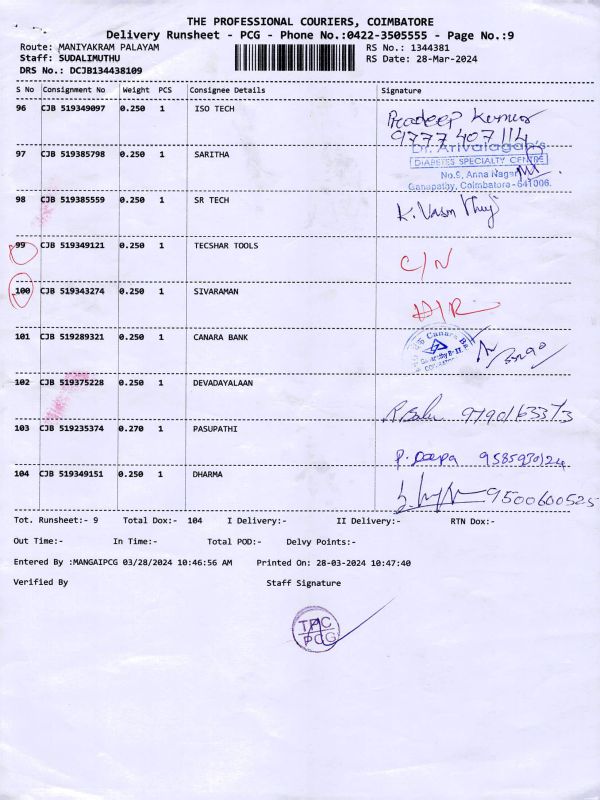 THE PROFESSIONAL COURIERS, COIMBATORE
Delivery Runsheet - PCG - Phone No.:0422-3505555 - Page No.:9
Route: MANIYAKRAM PALAYAM RS No.: 1344381
Staff: SUDALIMUTHU RS Date: 28-Mar-2024
DRS No.: DCJB134438109
S No Consignment No Weight PCS Consignee Details Signature
96 CJB 519349097 0.250 1 ISO TECH Pradeep Kumar
9777 407 114
97 CJB 519385798 0.250 1 SARITHA Dr. Arivalagan's
DIABETES SPECIALITY CENTRE
No.9, Anna Nagar
Ganapathy, Coimbatore-641006.
98 CJB 519385559 0.250 1 SR TECH K.
99 CJB 519349121 0.250 1 TECSHAR TOOLS C/N
100 CJB 519343274 0.250 1 SIVARAMAN D/R
101 CJB 519289321 0.250 1 CANARA BANK Canara
102 CJB 519375228 0.250 1 DEVADAYALAAN
R. Balu
103 CJB 519235374 0.270 1 PASUPATHI
P. Deepa
104 CJB 519349151 0.250 1 DHARMA
9500600525
Tot. Runsheet:- 9 Total Dox:- 104 I Delivery:- II Delivery:- RTN Dox:-
Out Time:- In Time:- Total POD:- Delvy Points:-
Entered By :MANGAIPCG 03/28/2024 10:46:56 AM Printed On: 28-03-2024 10:47:40
Verified By Staff Signature
TPC
PCG